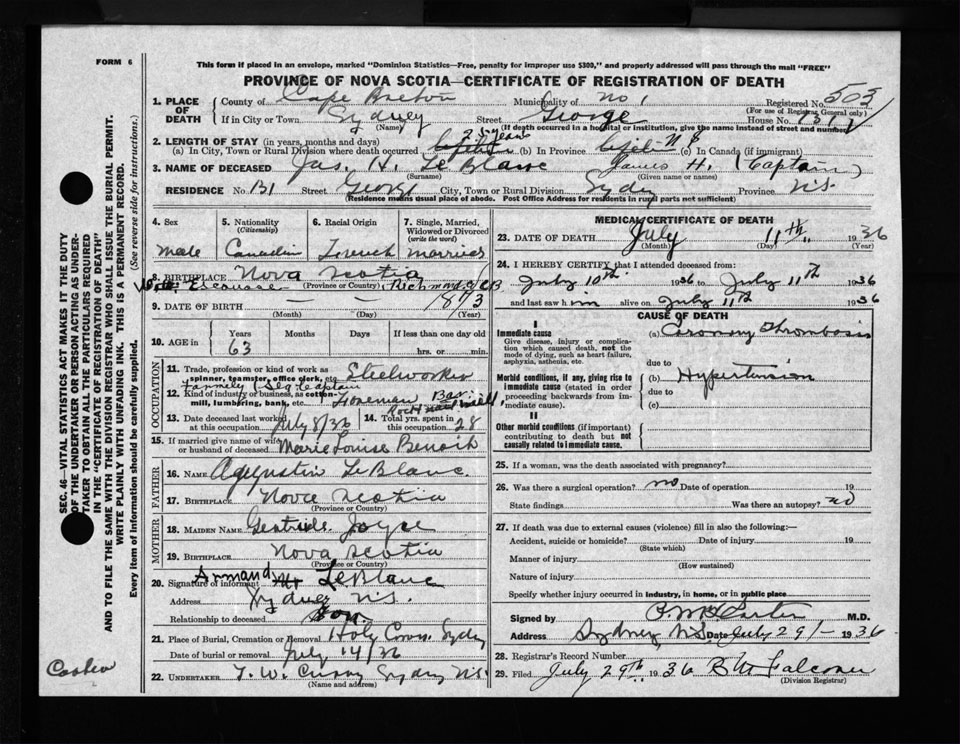 FORM 6
This form if placed in an envelope, marked "Dominion Statistics—Free, penalty for improper use $300," and properly addressed will pass through the mail "FREE"
PROVINCE OF NOVA SCOTIA—CERTIFICATE OF REGISTRATION OF DEATH
1. PLACE OF DEATH County of Cape Breton Municipality of No 1 Registered No. 503
(For use of Registrar General only)
If in City or Town Sydney Street George House No. 131
(Name) (If death occurred in a hospital or institution, give the name instead of street and number)
2. LENGTH OF STAY (in years, months and days) 28 years
(a) In City, Town or Rural Division where death occurred (b) In Province Life-NS (c) In Canada (if immigrant)
3. NAME OF DECEASED Jas. H. LeBlanc James H. (Captain)
(Surname) (Given name or names)
RESIDENCE No 131 Street George City, Town or Rural Division Sydney Province N.S.
(Residence means usual place of abode. Post Office Address for residents in rural parts not sufficient)
4. Sex male
5. Nationality (Citizenship) Canadian
6. Racial Origin French
7. Single, Married, Widowed or Divorced (write the word) married
8. BIRTHPLACE Nova Scotia
(Province or Country) Richmond Co CB
9. DATE OF BIRTH — — 1873
(Month) (Day) (Year)
10. AGE in Years 63 Months Days If less than one day old
hrs. or min.
OCCUPATION
11. Trade, profession or kind of work as spinner, teamster, office clerk, etc. Steelworker
Formerly Sea Captain
12. Kind of industry or business as cotton-mill, lumbering, bank, etc. Foreman Bar
13. Date deceased last worked at this occupation July 8/36
14. Total yrs. spent in this occupation 28
15. If married give name of wife or husband of deceased Marie Louise Benoit
FATHER
16. NAME Augustin LeBlanc
17. BIRTHPLACE Nova Scotia
(Province or Country)
MOTHER
18. MAIDEN NAME Gertrude Joyce
19. BIRTHPLACE Nova Scotia
(Province or Country)
20. Signature of informant Armand LeBlanc
Address Sydney N.S.
Relationship to deceased Son.
21. Place of Burial, Cremation or Removal Holy Cross Sydney
Date of burial or removal July 14/36
22. UNDERTAKER T. W. Curry Sydney N.S.
(Name and address)
MEDICAL CERTIFICATE OF DEATH
23. DATE OF DEATH July 11th 1936
(Month) (Day) (Year)
24. I HEREBY CERTIFY that I attended deceased from
July 10th 1936 to July 11th 1936
and last saw him alive on July 11th 1936
CAUSE OF DEATH
I
Immediate cause (a) Coronary Thrombosis
Give disease, injury or complication which caused death, not the mode of dying, such as heart failure, asphyxia, asthenia, etc.
due to
Morbid conditions, if any, giving rise to immediate cause (stated in order proceeding backwards from immediate cause). (b) Hypertension
due to
(c)
II
Other morbid conditions (if important) contributing to death but not causally related to immediate cause.
25. If a woman, was the death associated with pregnancy?
26. Was there a surgical operation? no Date of operation 19
State findings Was there an autopsy? no
27. If death was due to external causes (violence) fill in also the following:—
Accident, suicide or homicide? Date of injury 19
(State which)
Manner of injury
(How sustained)
Nature of injury
Specify whether injury occurred in industry, in home, or in public place
Signed by M.D.
Address Sydney N.S. Date July 29/- 1936
28. Registrar's Record Number
29. Filed July 29th 1936 B M Falconer
(Division Registrar)
SEC. 46—VITAL STATISTICS ACT MAKES IT THE DUTY
OF THE UNDERTAKER OR PERSON ACTING AS UNDER-
TAKER TO OBTAIN ALL THE PARTICULARS REQUIRED
IN THE "CERTIFICATE OF REGISTRATION OF DEATH"
AND TO FILE THE SAME WITH THE DIVISION REGISTRAR WHO SHALL ISSUE THE BURIAL PERMIT.
WRITE PLAINLY WITH UNFADING INK. THIS IS A PERMANENT RECORD.
Every item of information should be carefully supplied. (See reverse side for instructions.)